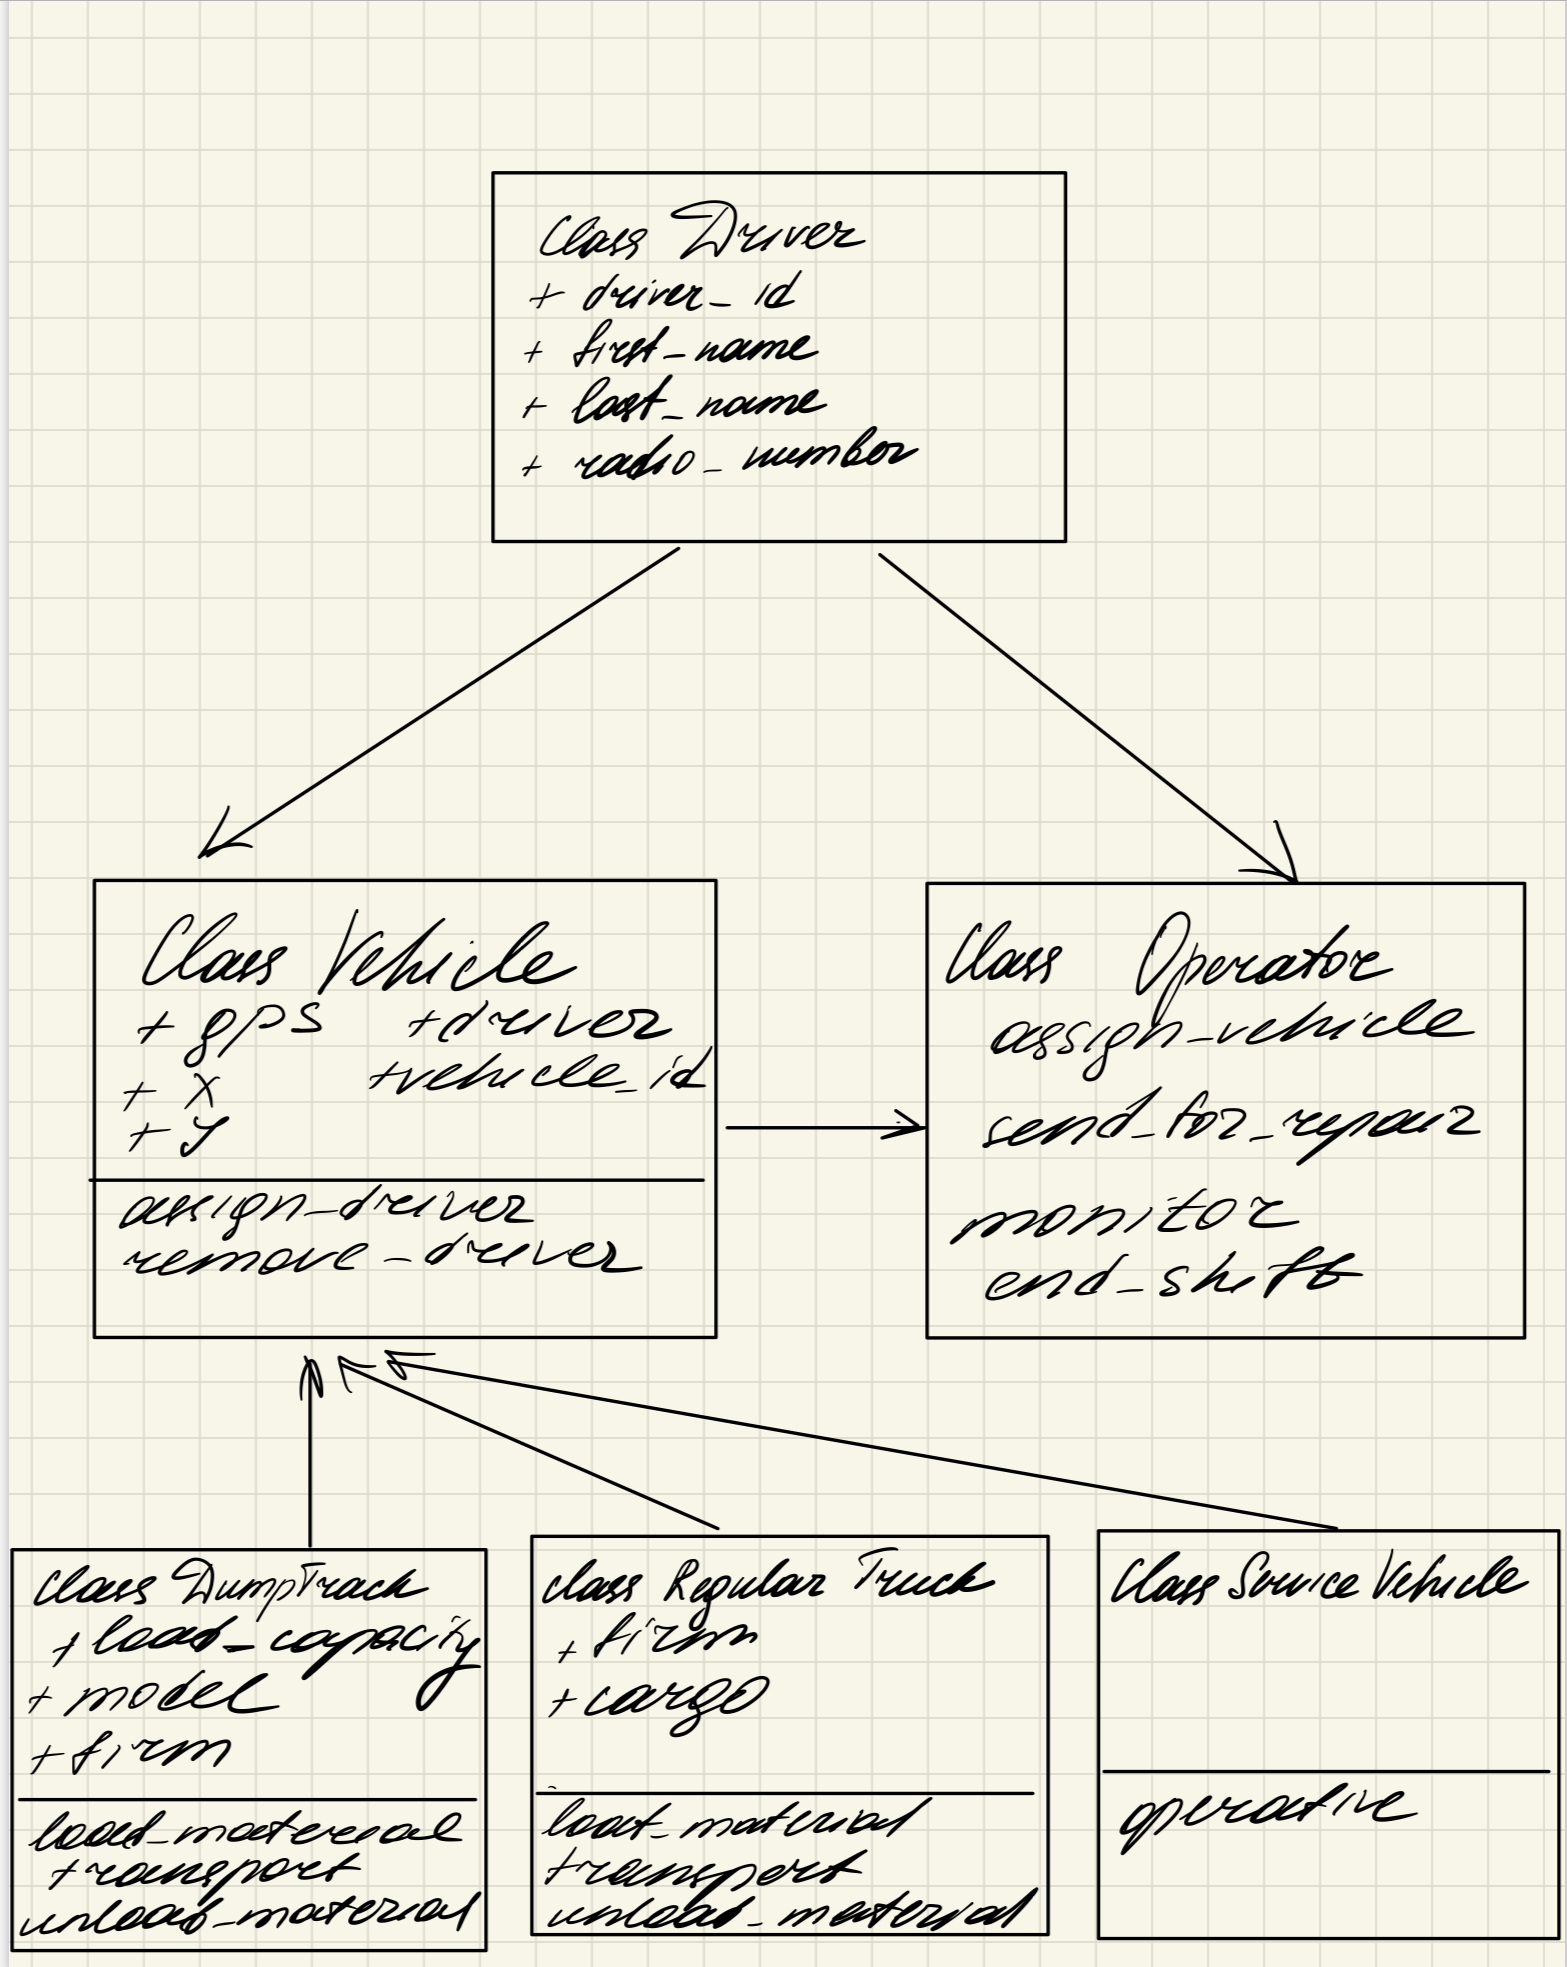 Class Driver
+ driver_id
+ first_name
+ last_name
+ radio_number
Class Vehicle
+ gps +driver
+ x +vehicle_id
+ y
assign_driver
remove_driver
Class Operator
assign_vehicle
send_for_repair
monitor
end_shift
class DumpTrack
+ load_capacity
+ model
+ firm
load_material
transport
unload_material
class Regular Truck
+ firm
+ cargo
load_material
transport
unload_material
Class Service Vehicle
operative